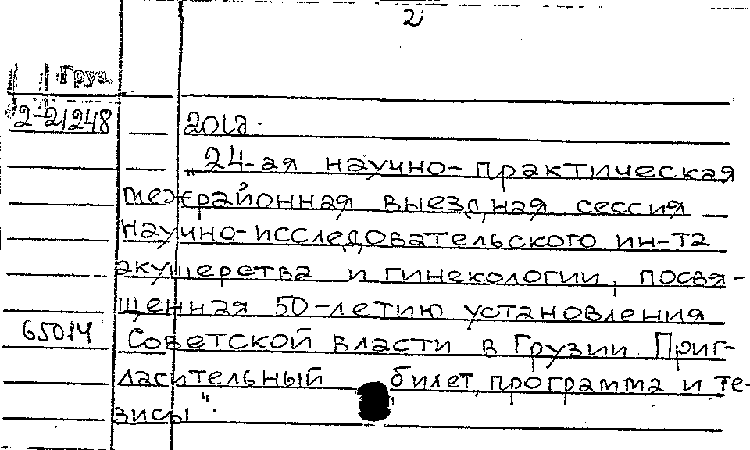 2
Груз.
2-21248
201г.
„24-ая научно-практическая
межрайонная выездная сессия
научно-исследовательского ин-та
акушерства и гинекологии, посвя-
щенная 50-летию установления
65014 Советской власти в Грузии. Приг-
ласительный билет, программа и те-
зисы".